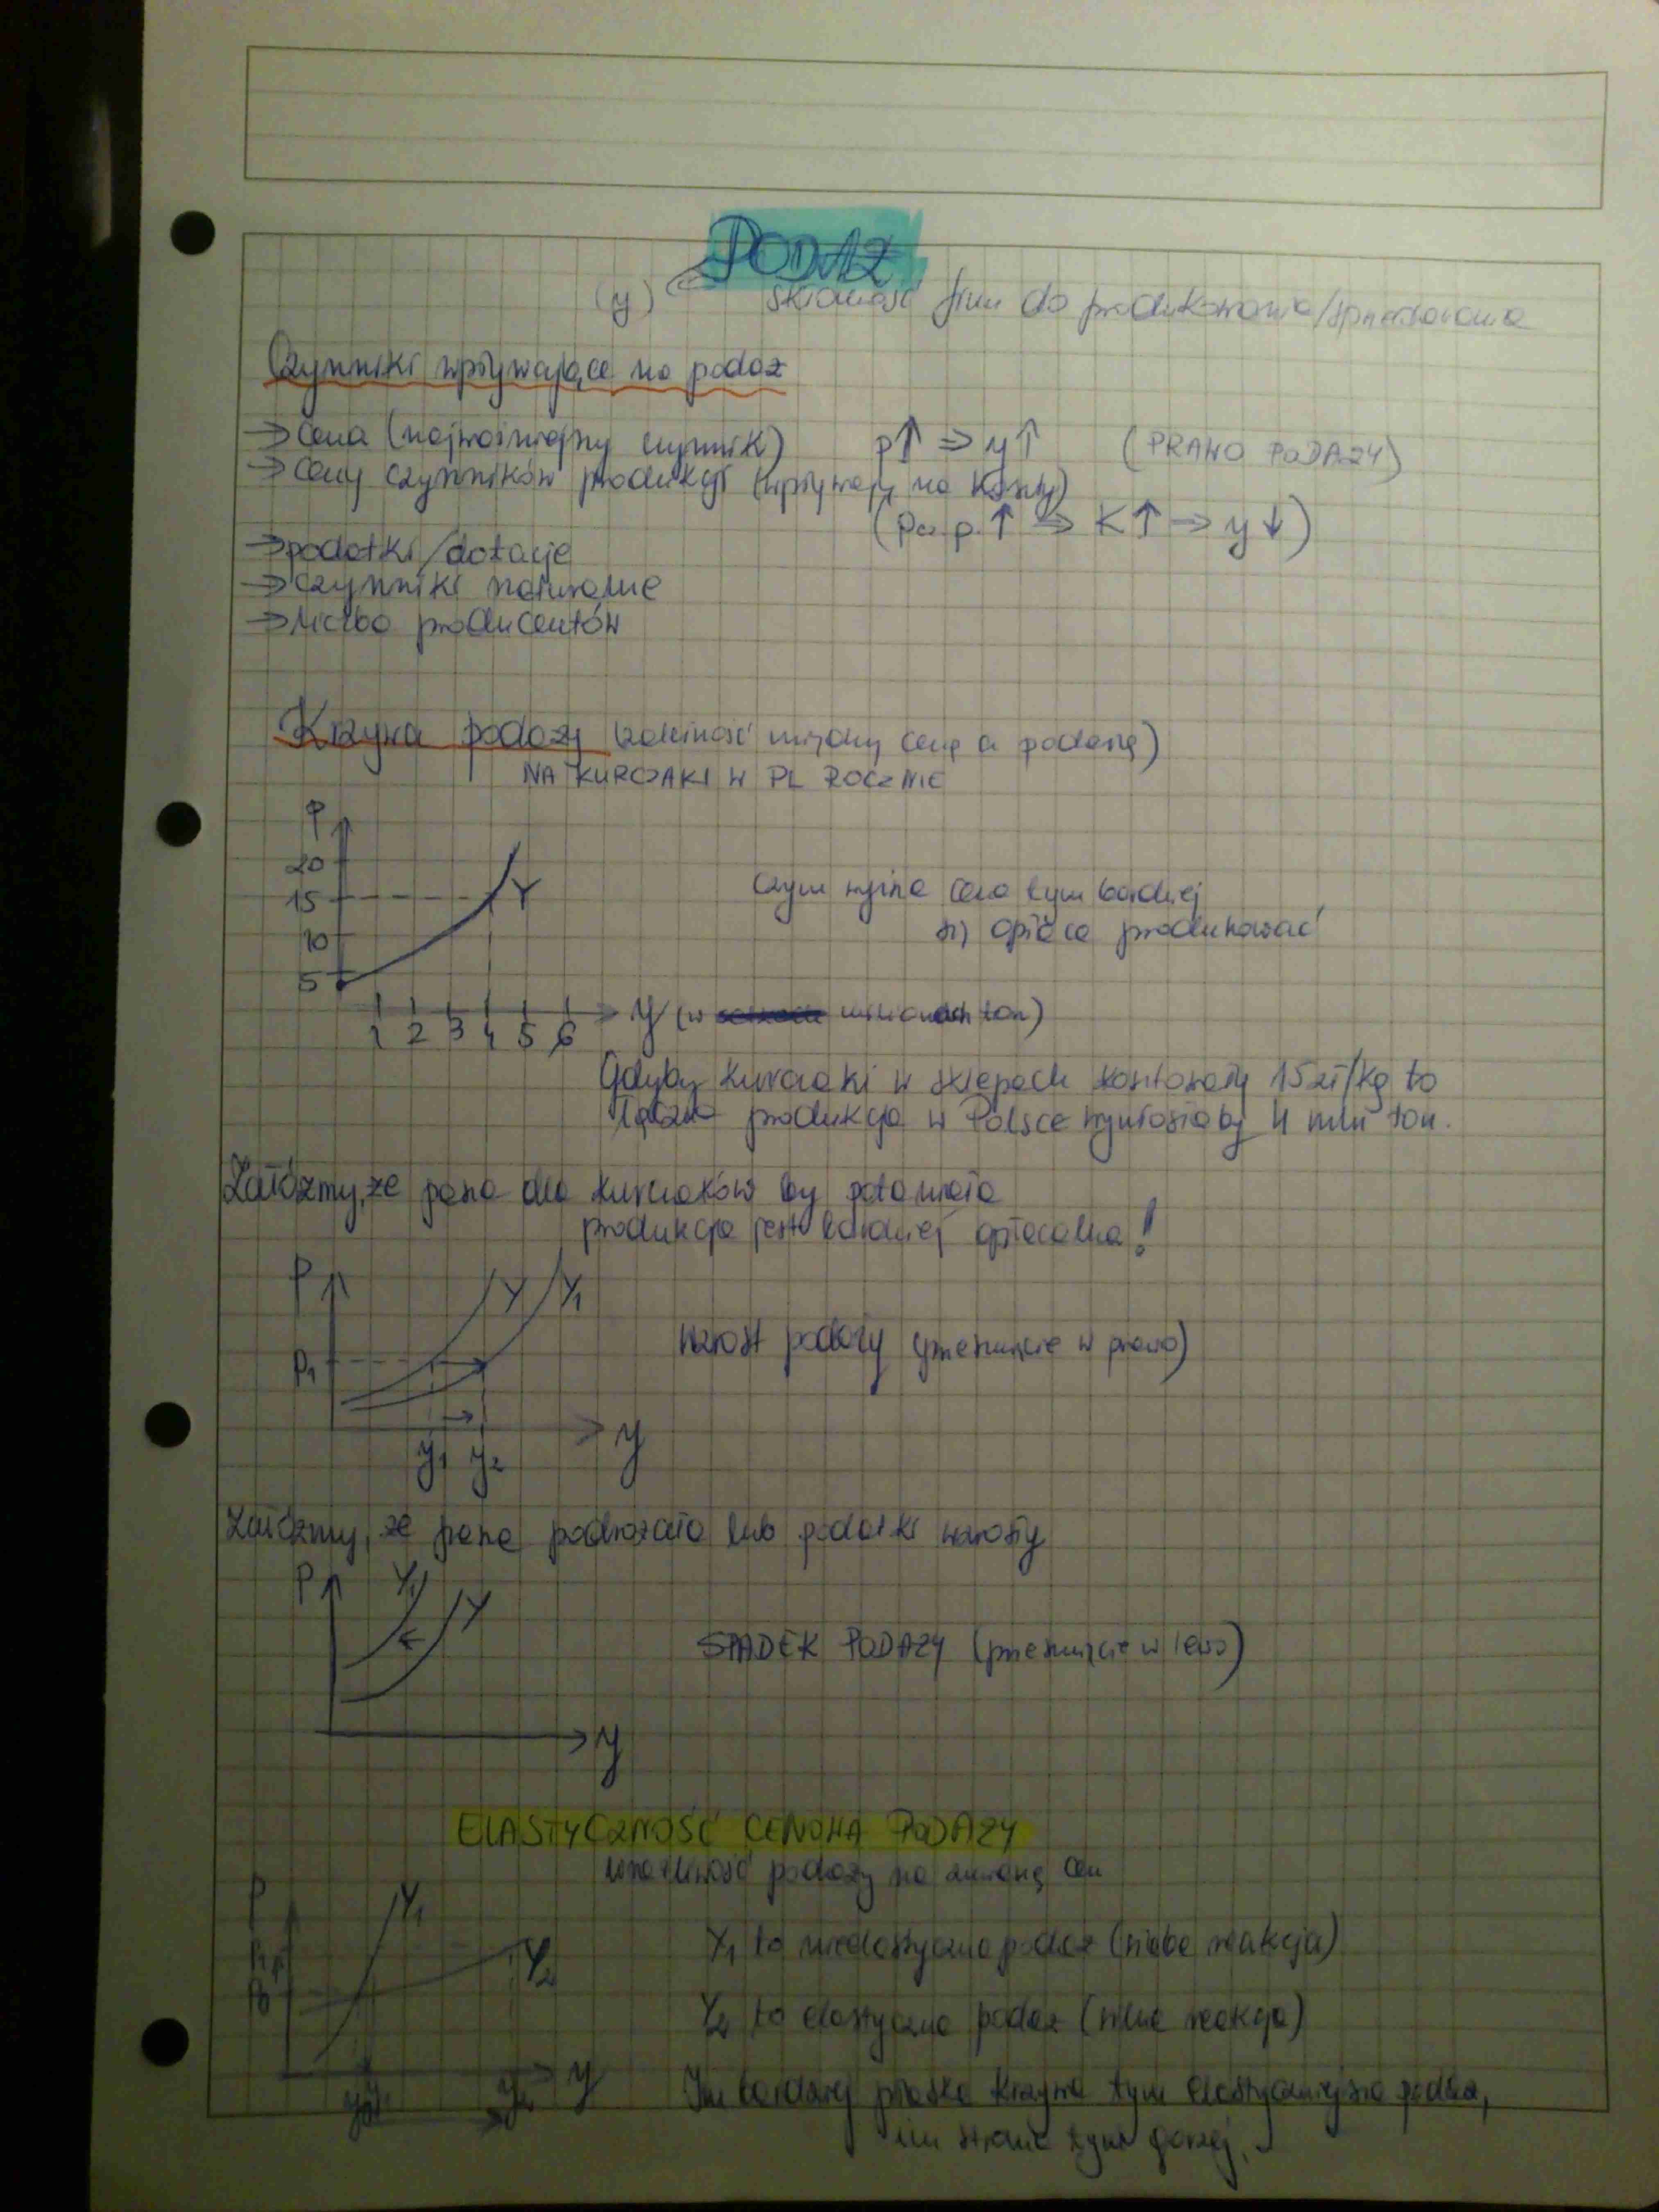 PODAŻ
(y) skłonność firm do produkowania/sprzedawania
Czynniki wpływające na podaż
→ cena (najważniejszy czynnik) p↑ ⇒ y↑ (PRAWO PODAŻY)
→ ceny czynników produkcji (wpływają na koszty)
(Pcz.p.↑ ⇒ K↑ → y↓)
→ podatki/dotacje
→ czynniki naturalne
→ liczba producentów
Krzywa podaży (zależność między ceną a podażą)
NA KURCZAKI W PL ROCZNIE
P
20
15 Y
10
5
1 2 3 4 5 6 y (w milionach ton)
czym wyższa cena tym bardziej
się opłaca produkować
Gdyby kurczaki w sklepach kosztowały 15zł/kg to
łączna produkcja w Polsce wynosiłaby 4 mln ton.
Załóżmy, że pasza dla kurczaków by potaniała
produkcja jest bardziej opłacalna!
P Y Y₁
P₁
y₁ y₂ y
wzrost podaży (przesunięcie w prawo)
Załóżmy, że pasza podrożała lub podatki wzrosły
P Y₁ Y
y
SPADEK PODAŻY (przesunięcie w lewo)
ELASTYCZNOŚĆ CENOWA PODAŻY
wrażliwość podaży na zmianę cen
P Y₁
P₁ Y₂
P₀
y
Y₁ to nieelastyczna podaż (słaba reakcja)
Y₂ to elastyczna podaż (silna reakcja)
Im bardziej płaska krzywa tym elastyczniejsza podaż,
im stroma tym gorzej.